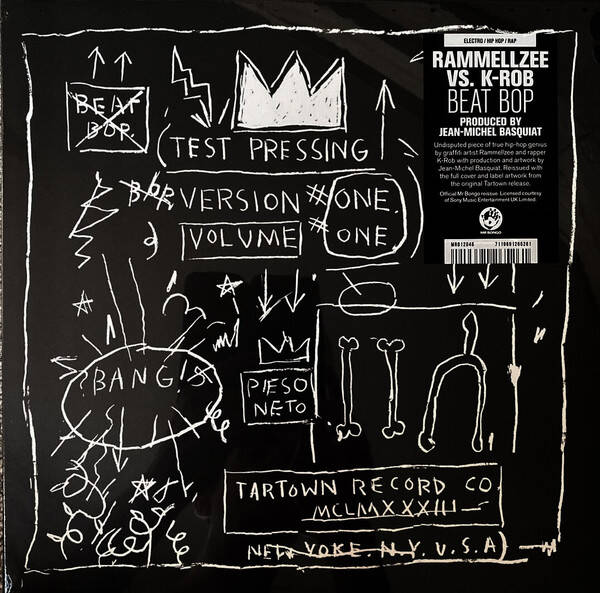 BEAT
BOP.
(TEST PRESSING)
BOP VERSION #ONE.
VOLUME #ONE.
?BANG!
PIESO
NETO
TARTOWN RECORD CO.
MCLMXXXIII
NEW YOKE. N.Y. U.S.A)
ELECTRO / HIP HOP / RAP
RAMMELLZEE
VS. K-ROB
BEAT BOP
PRODUCED BY
JEAN-MICHEL BASQUIAT
Undisputed piece of true hip-hop genius
by graffiti artist Rammellzee and rapper
K-Rob with production and artwork by
Jean-Michel Basquiat. Reissued with
the full cover and label artwork from
the original Tartown release.
Official Mr Bongo reissue. Licensed courtesy
of Sony Music Entertainment UK Limited.
MR BONGO
MRB12046